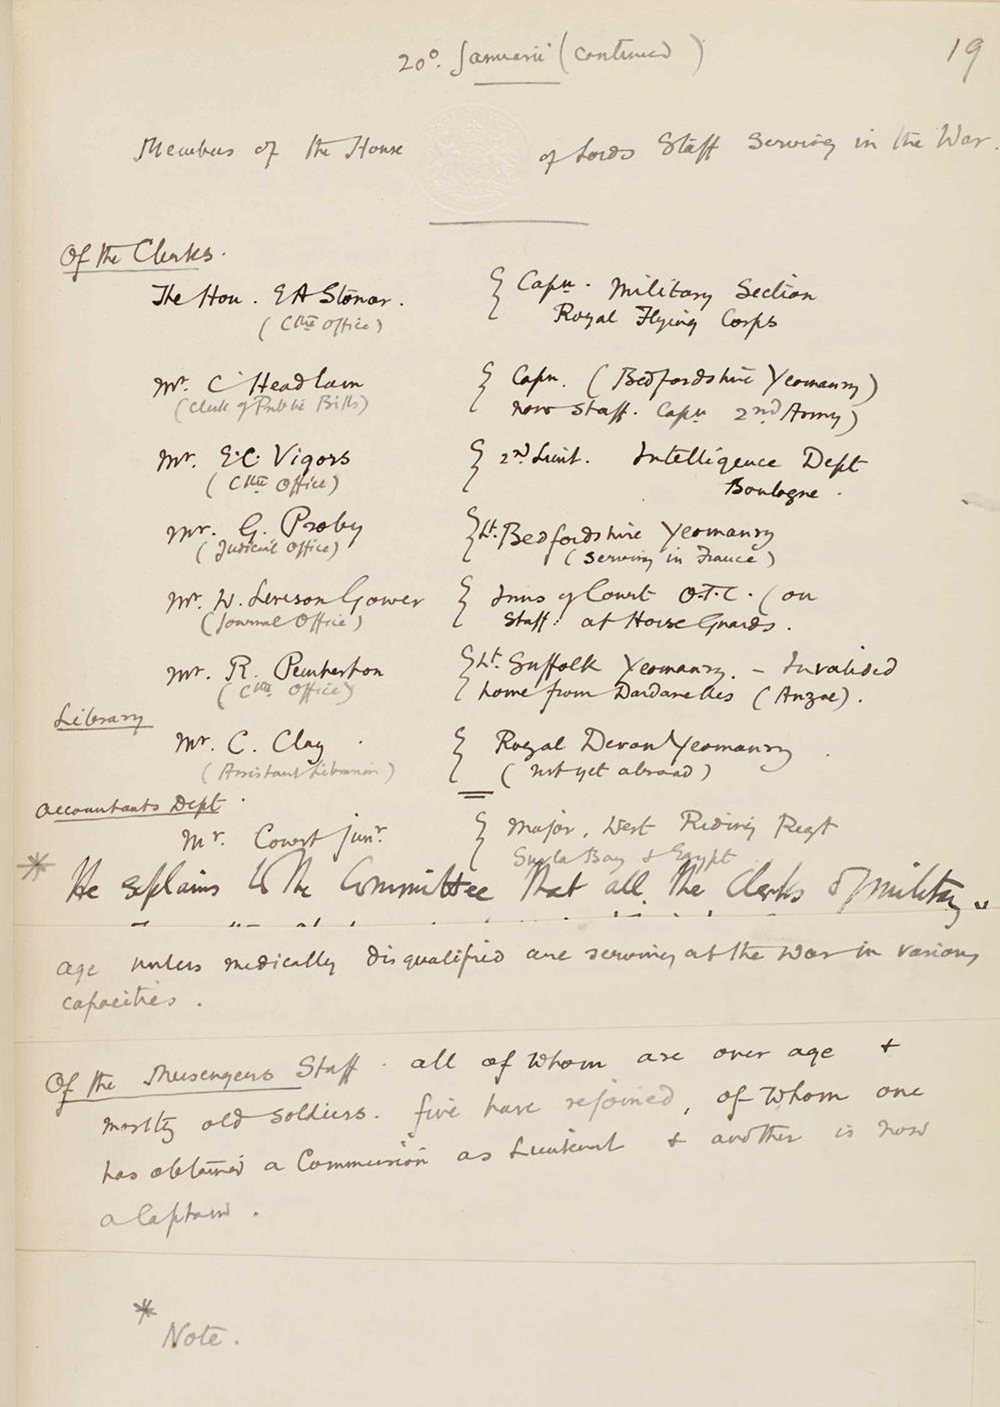 19
20º. Januarii (continued)
Members of the House of Lords Staff Serving in the War.
Of the Clerks.
The Hon. E A Stonor. { Captn. Military Section
(Clks Office) Royal Flying Corps
Mr. C Headlam { Captn. (Bedfordshire Yeomanry)
(Clerk of Public Bills) now Staff. Captn 2nd Army)
Mr. E.C. Vigors { 2nd Lieut. Intelligence Dept
(Clks Office) Boulogne.
Mr. G. Proby { Lt. Bedfordshire Yeomanry
(Judicial Office) (serving in France)
Mr. W. Leveson Gower { Inns of Court O.T.C. (on
(Journal Office) Staff. at Horse Guards.
Mr. R. Pemberton { Lt. Suffolk Yeomanry. – Invalided
(Clks Office) home from Dardanelles (Anzac).
Library
Mr. C. Clay { Royal Devon Yeomanry
(Assistant Librarian) (not yet abroad)
Accountants Dept.
Mr. Court junr. { Major, West Riding Regt
Suvla Bay & Egypt
* He explains to the Committee that all the Clerks of military
age unless medically disqualified are serving at the War in various
capacities.
Of the Messengers Staff. all of whom are over age &
mostly old soldiers. five have rejoined, of whom one
has obtained a Commission as Lieutenant & another is now
a Captain.
*
Note.